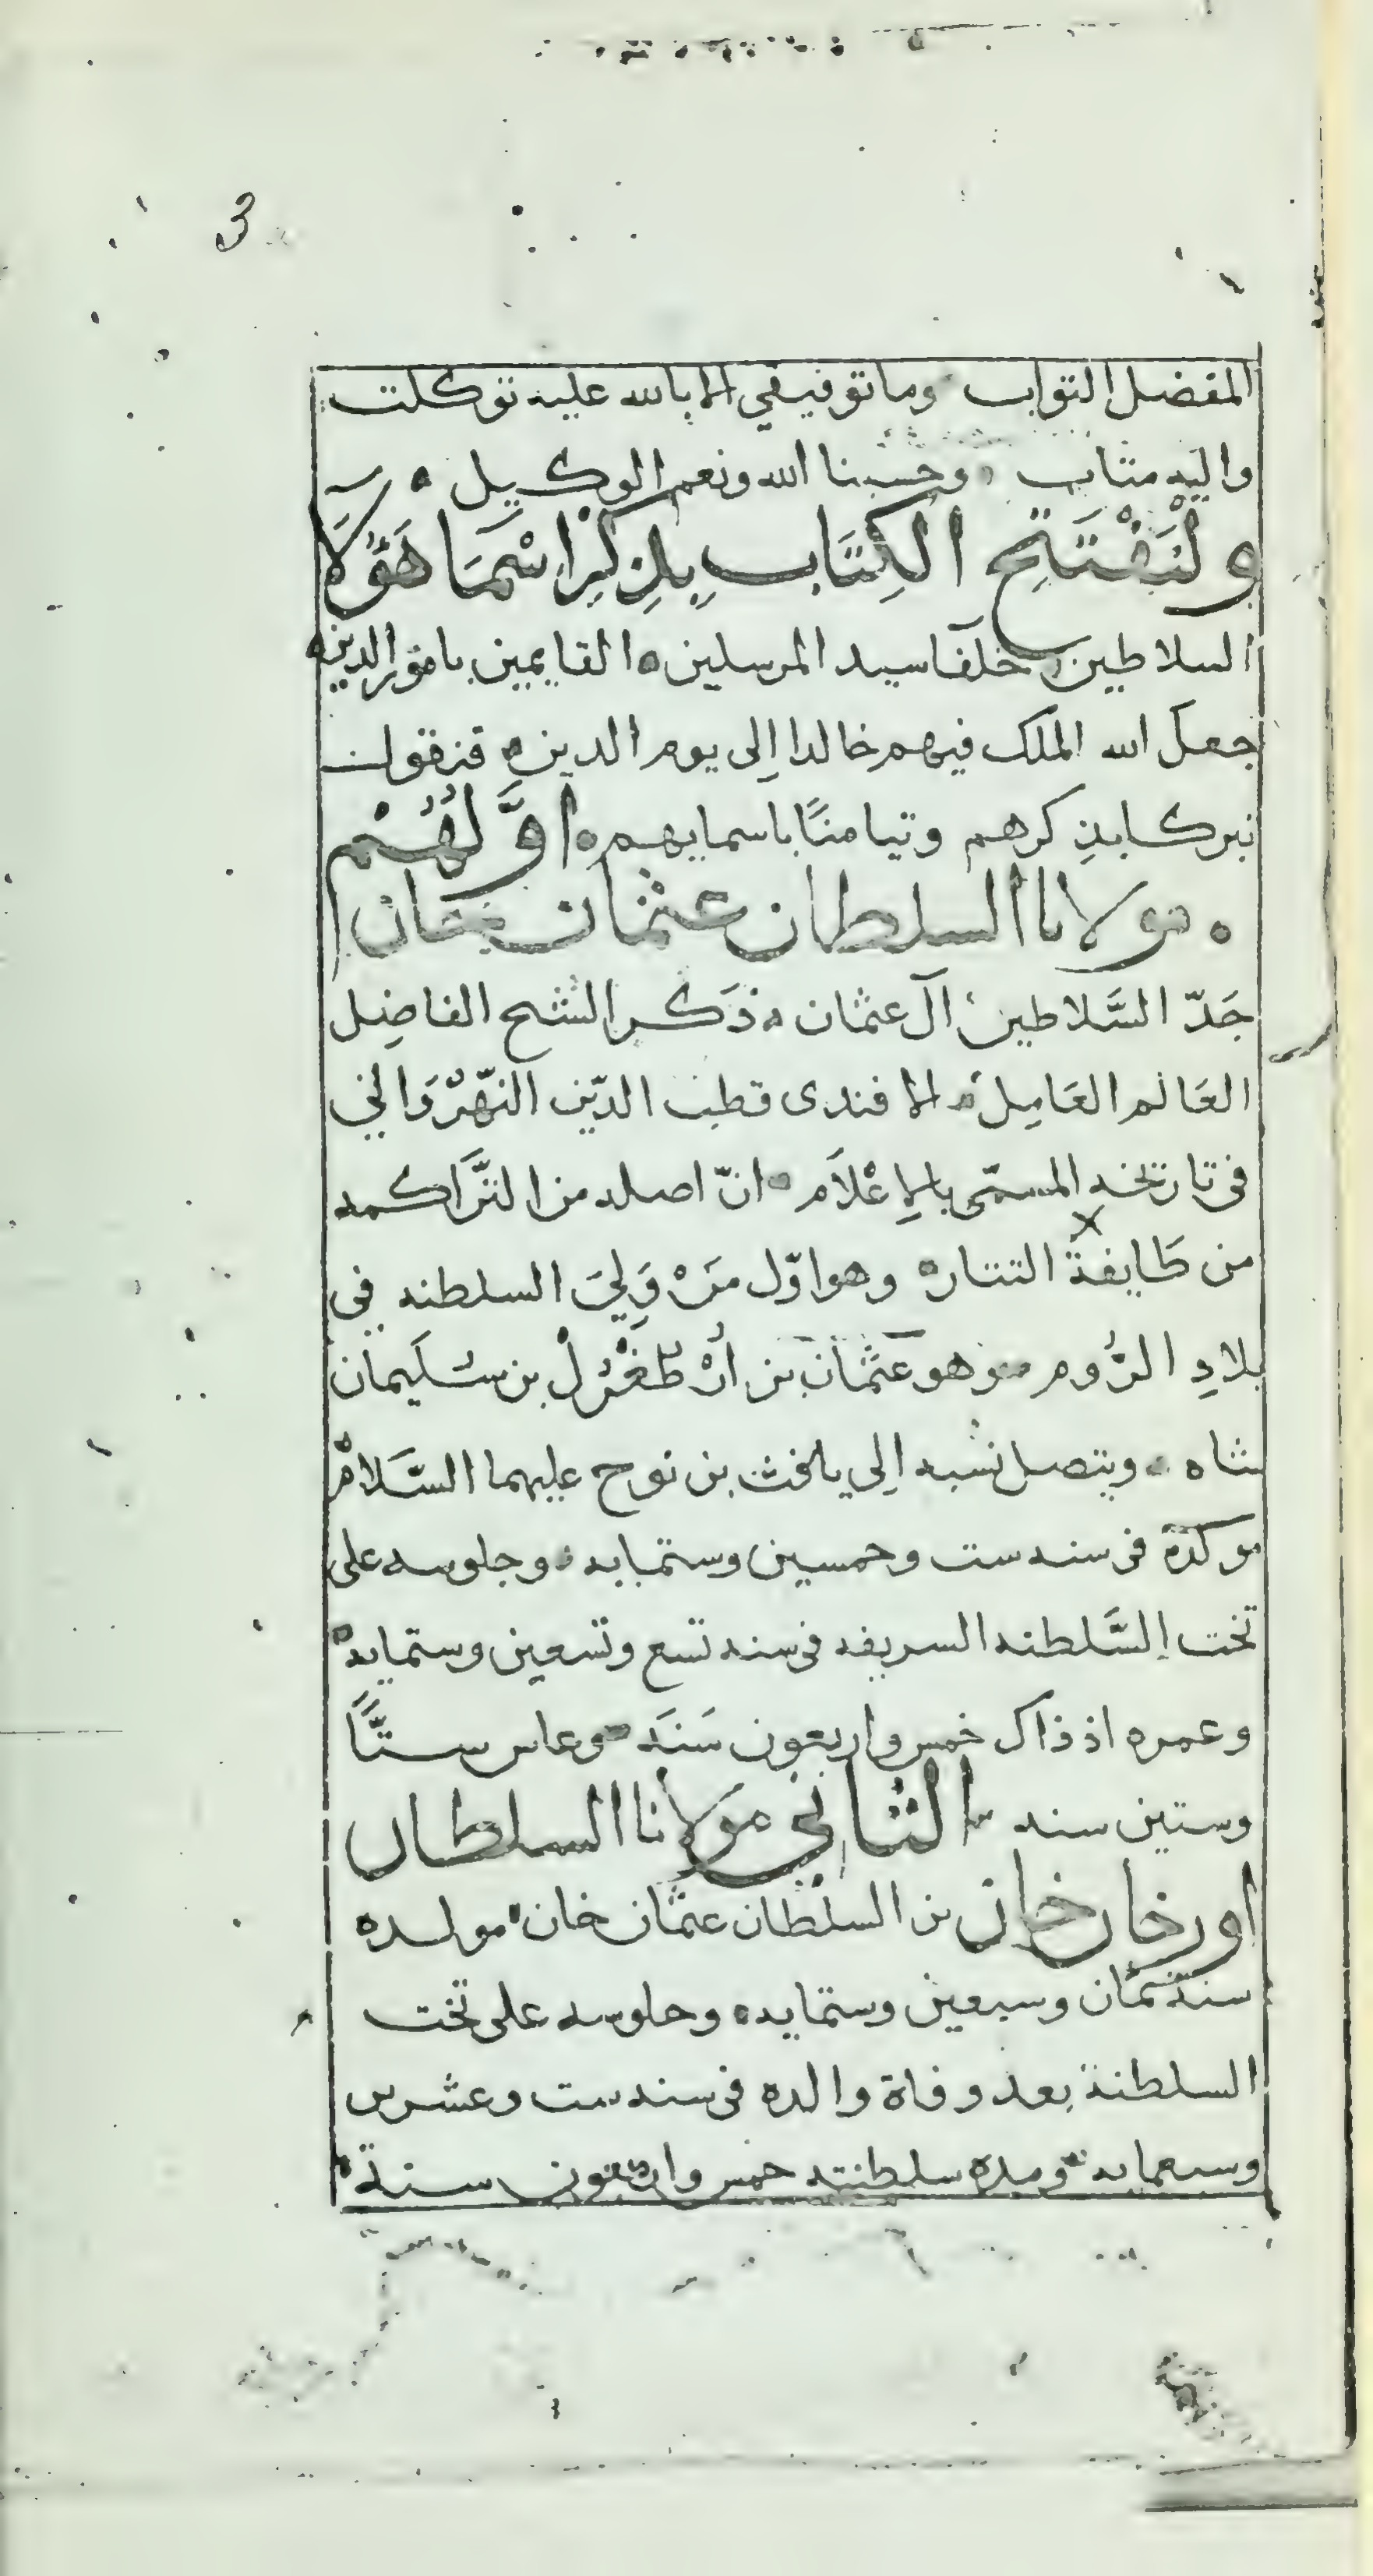 3
المفضل التواب وما توفيقي الا بالله عليه توكلت
واليه متاب وحسبنا الله ونعم الوكيل
ولنَفْتَتِح الكِتَاب بِذِكْرِ اسْمَا هَؤُلَآ
السلاطين خلفا سيد المرسلين القايمين بامور الدين
جعل الله الملك فيهم خالدا اِلى يوم الدين فنقول
تبركا بذِكرهم وتيامنًا باسمايهم اوَّلهُم
مولانا السلطان عثمان خان
جَدّ السَّلاطين آل عثمان ذَكر الشيخ الفاضِل
العَالم العَامِل الافندى قطب الدّين النّهْرَوَالي
فى تاريخه المسمّى بالاِعْلَام انّ اصله من التَّرَاكمه
من طَايفة التتار وهو اوّل مَنْ وَلِيَ السلطنه في
بلادِ الرُّوم وهو عثمَان بن أرْطُغْرُلْ بن سُليمان
شاه ويتصل نسبه اِلى يافث بن نوح عليهما السَّلام
مولده فى سنه ست وخمسين وستمايه وجلوسه على
تخت السَّلطنه السريفه فى سنه تسع وتسعين وستمايه
وعمره اذ ذاك خمس واربعون سَنَه وعاس ستًّا
وستين سنه الثاني مولانا السلطان
اورخان خان بن السلطان عثمان خان مولده
سنة ثمان وسبعين وستمايه وجلوسه على تخت
السلطنة بعد وفاة والده فى سنه ست وعشرين
وسبعمايه ومدة سلطنته خمس واربعون سنة